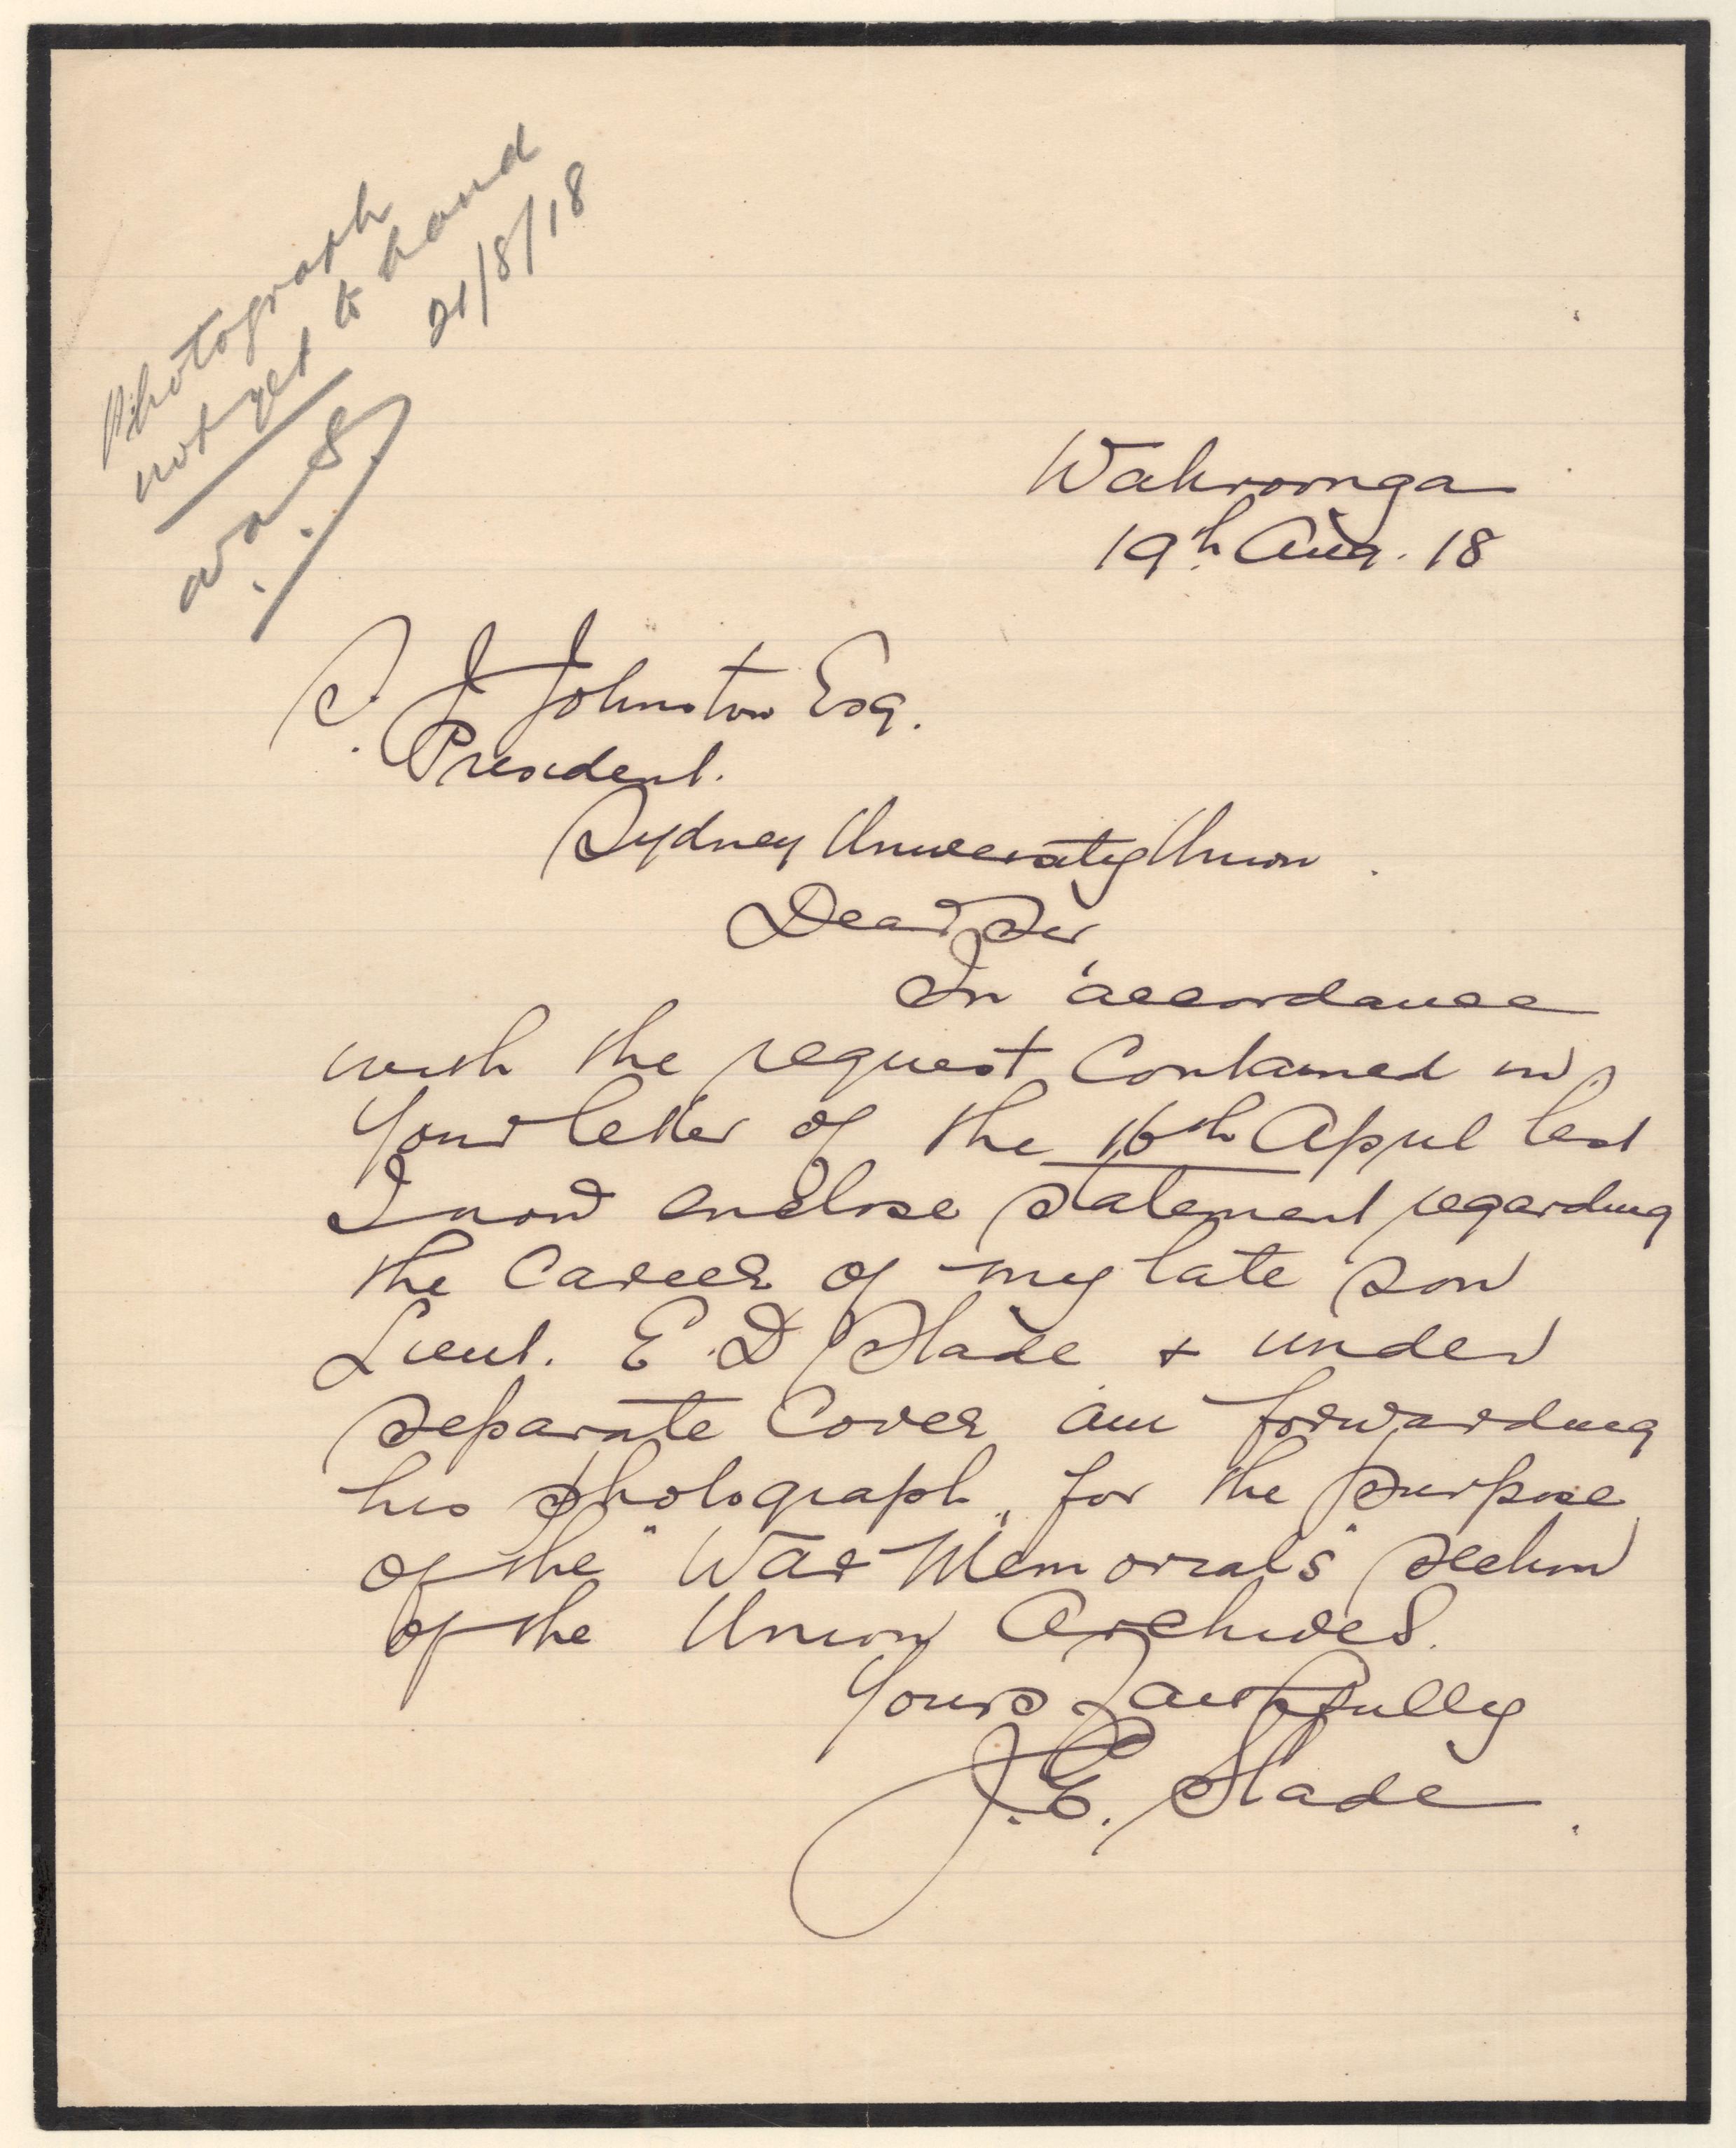 Photograph
not yet to hand
21/8/18
Wahroonga
19th Aug. 18
S. J Johnston Esq.
President.
Sydney University Union.
Dear Sir
In accordance
with the request contained in
your letter of the 16th April last
I now enclose statement regarding
the career of my late son
Lieut. E. D Slade + under
separate cover am forwarding
his photograph, for the purpose
of the "War Memorials" section
of the Union Archives.
Yours Faithfully
J. E. Slade.